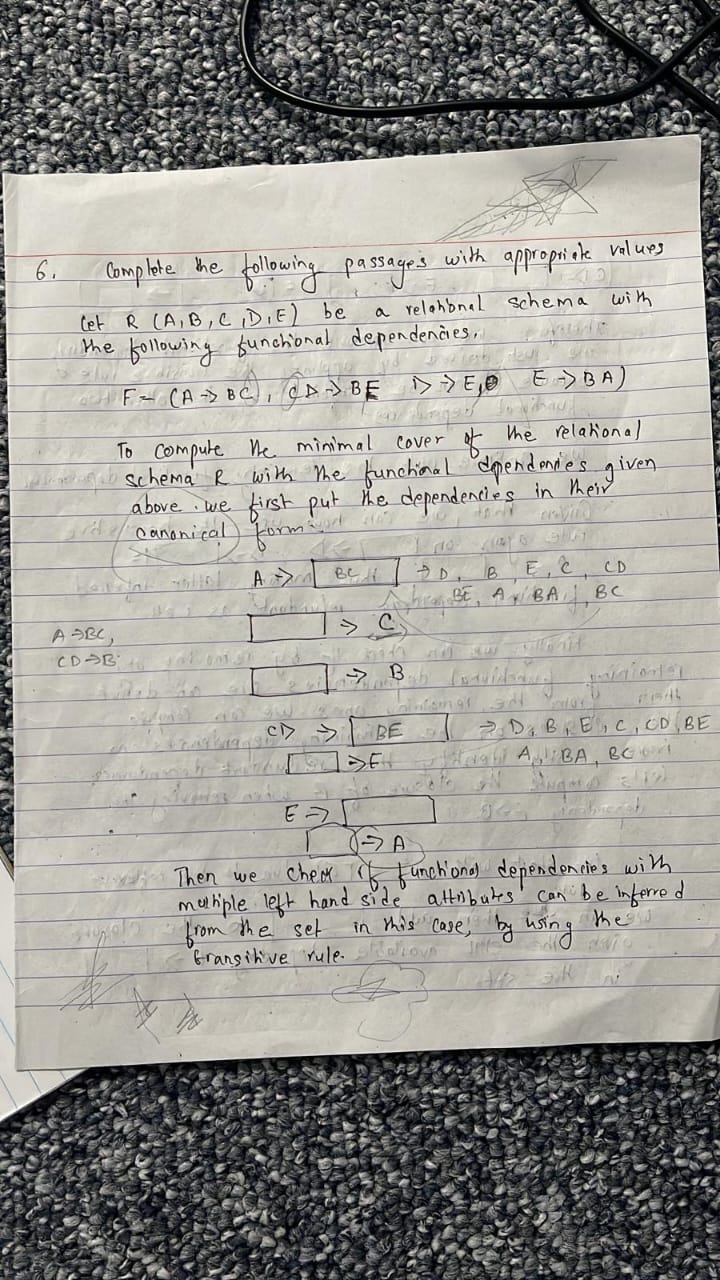 6. Complete the following passages with appropriate values
Let R (A, B, C, D, E) be a relational schema with
the following functional dependencies.
F = (A → BC), CD → BE D → E, E → BA)
To compute the minimal cover of the relational
schema R with the functional dependencies given
above. we first put the dependencies in their
canonical form:
A → BC → D, B, E, C, CD
BE, A, BA, BC
→ C
A → BC,
CD → B
→ B
CD → BE → D, B, E, C, CD, BE
→ E A, BA, BC
E →
→ A
Then we check if functional dependencies with
multiple left hand side attributes can be inferred
from the set in this case, by using the
transitive rule.